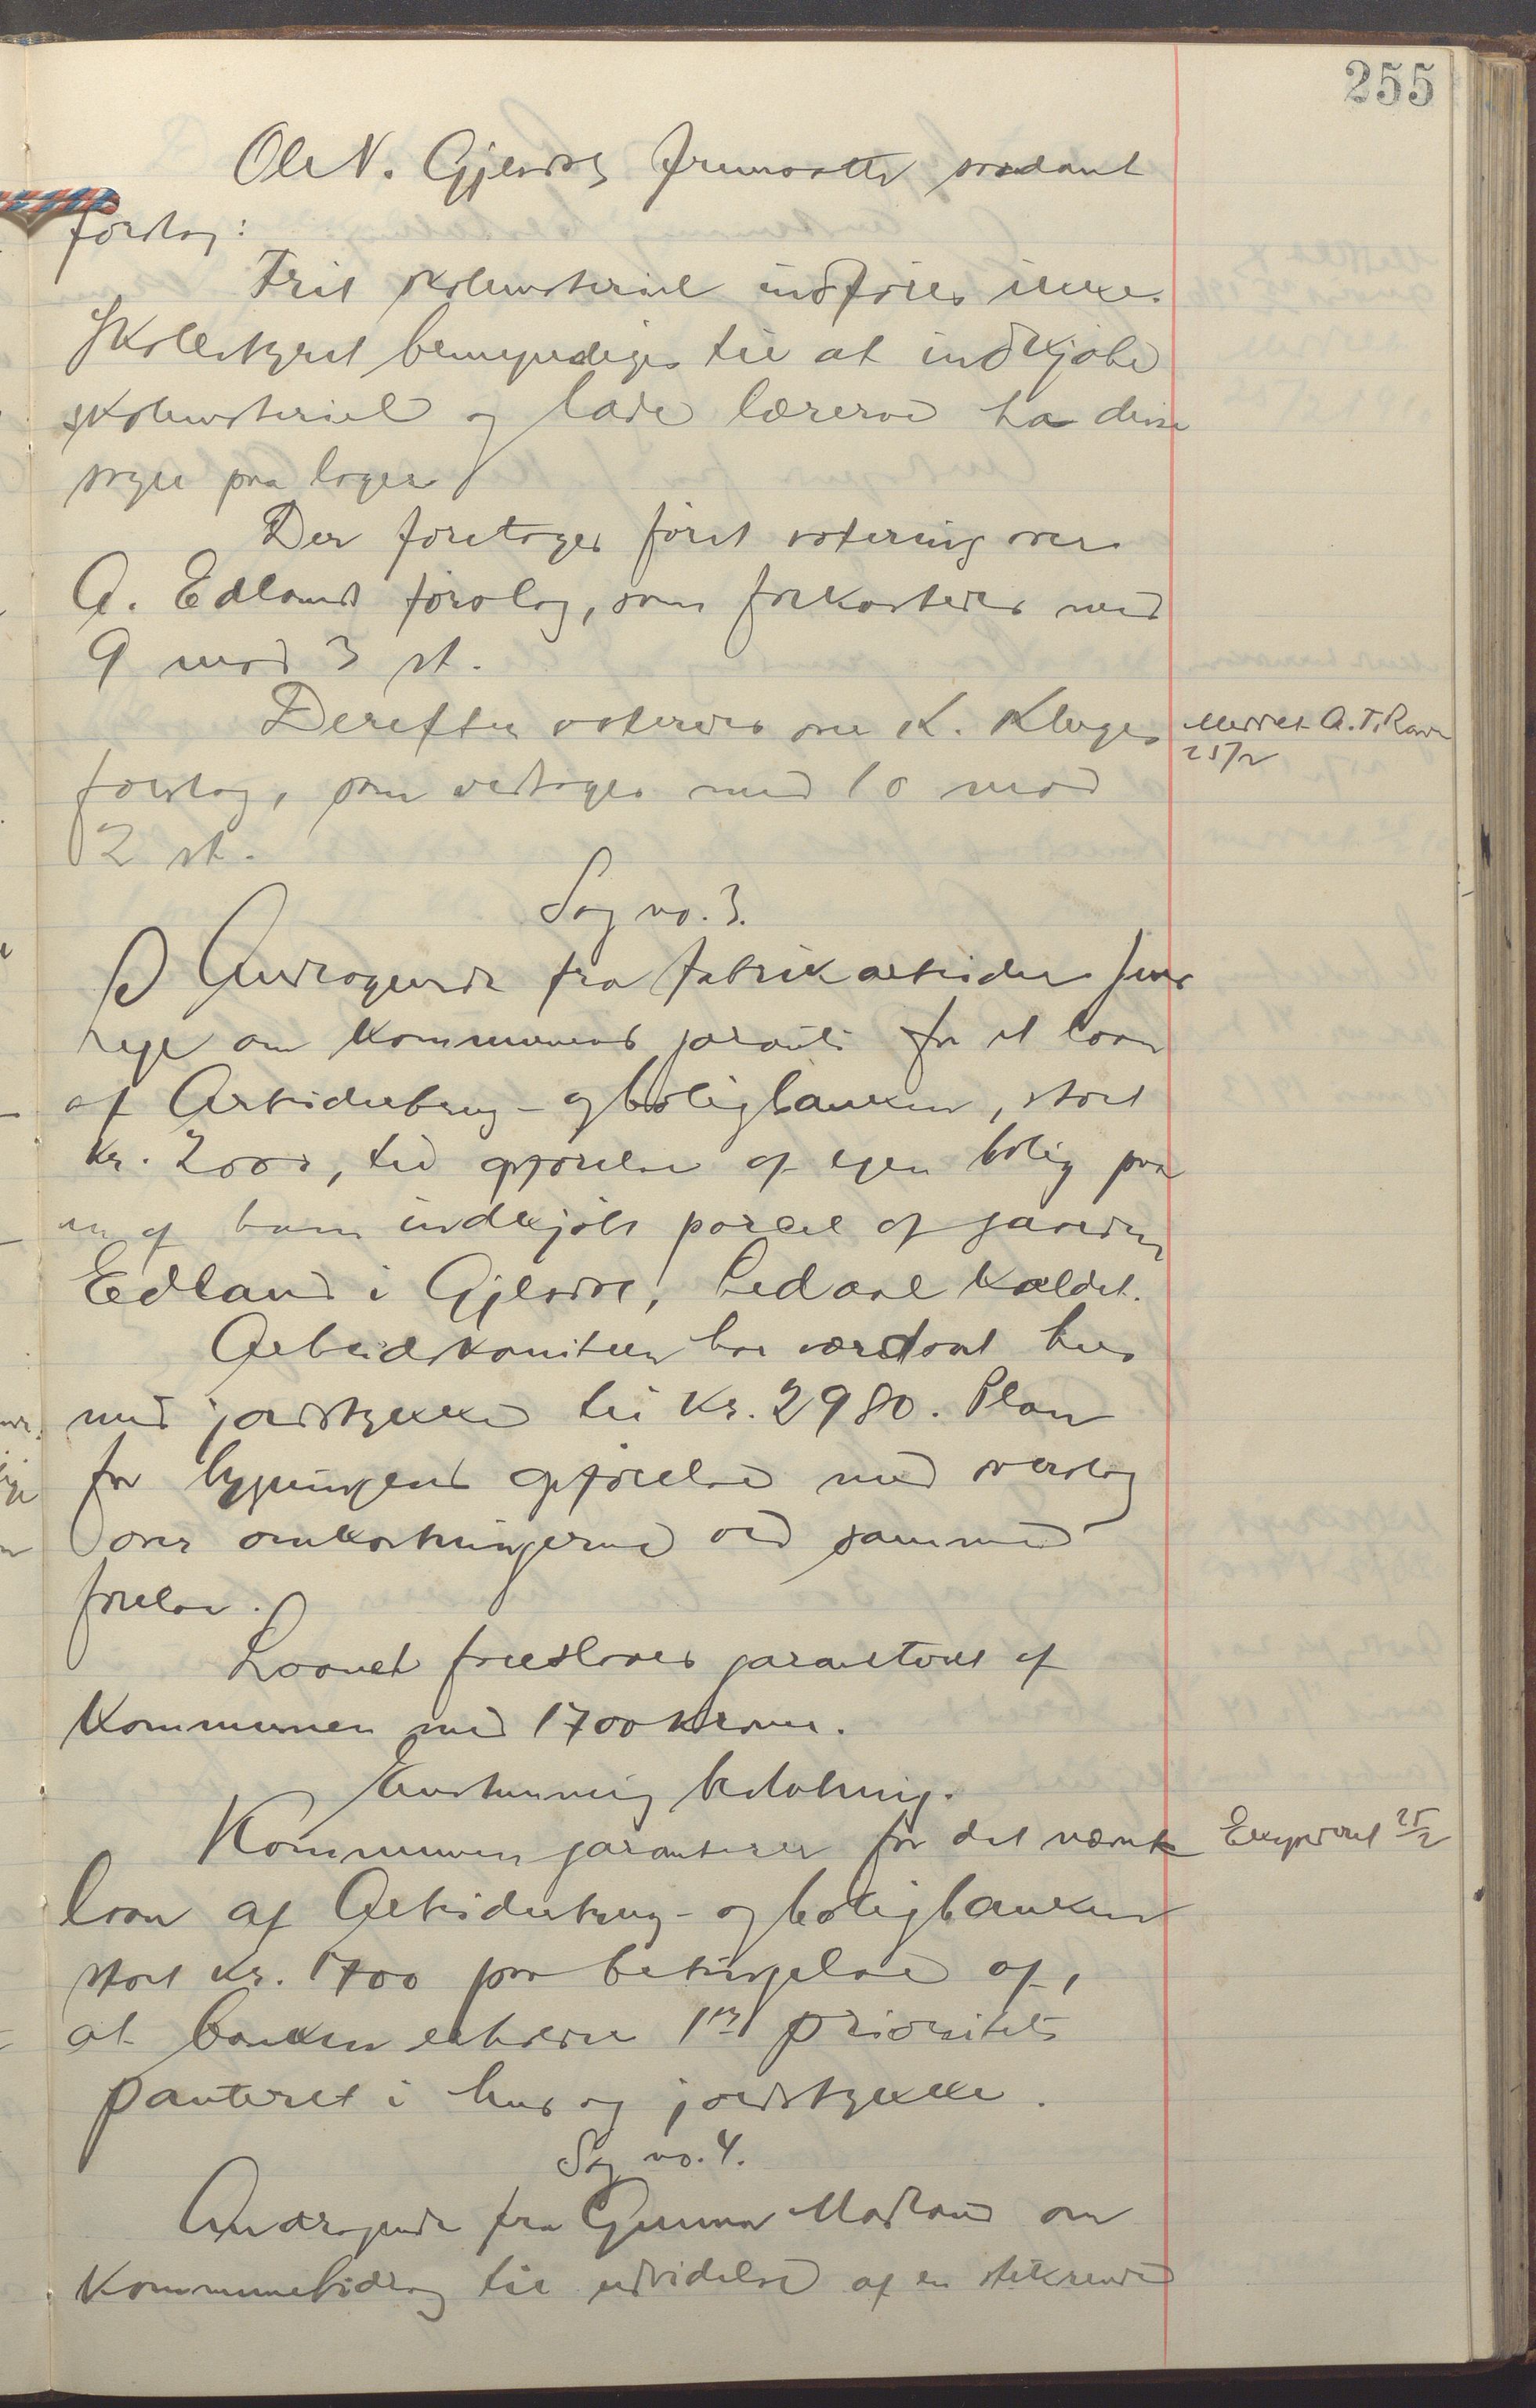 255
Ole N. Gjesdal fremsatte saadant
forslag:
Frit skolemateriel indføres ikke.
Skolestyret bemyndiges til at indkjøbe
skolemateriel og lade lærerne ha disse
paa lager
Der foretages først votering over
A. Edlands forslag, som forkastedes med
9 mod 3 st.
Derefter voteredes over K. Kluges
forslag, som vedtoges med 10 mod
2 st.
Meddelt A. T.
25/2
Sag no. 3.
Andragende fra fabrikarbeider
om kommunens garanti for et laan
af Arbeiderbrug- og boligbanken, stort
kr. 2000, til opførelse af egen bolig paa
en af ham indkjøbt parcel af gaarden
Edland i Gjesdal, kaldet.
Arbeidskomiteen har værdsat hus
med jordstykke til kr. 2980. Plan
for bygningens opførelse med overslag
over omkostningerne ved samme
forelaa.
Laanet foreslaaes garanteret af
Kommunen med 1700 kroner.
Enstemmig beslutning.
Kommunen garanterer for det nævnte
laan af Arbeiderbrug- og boligbanken
stort kr. 1700 paa betingelse af,
at banken erholder 1ste prioritets
panteret i hus og jordstykke.
Expederet 25/2
Sag no. 4.
Andragende fra Gunnar Madland om
kommunebidrag til udvidelse af en